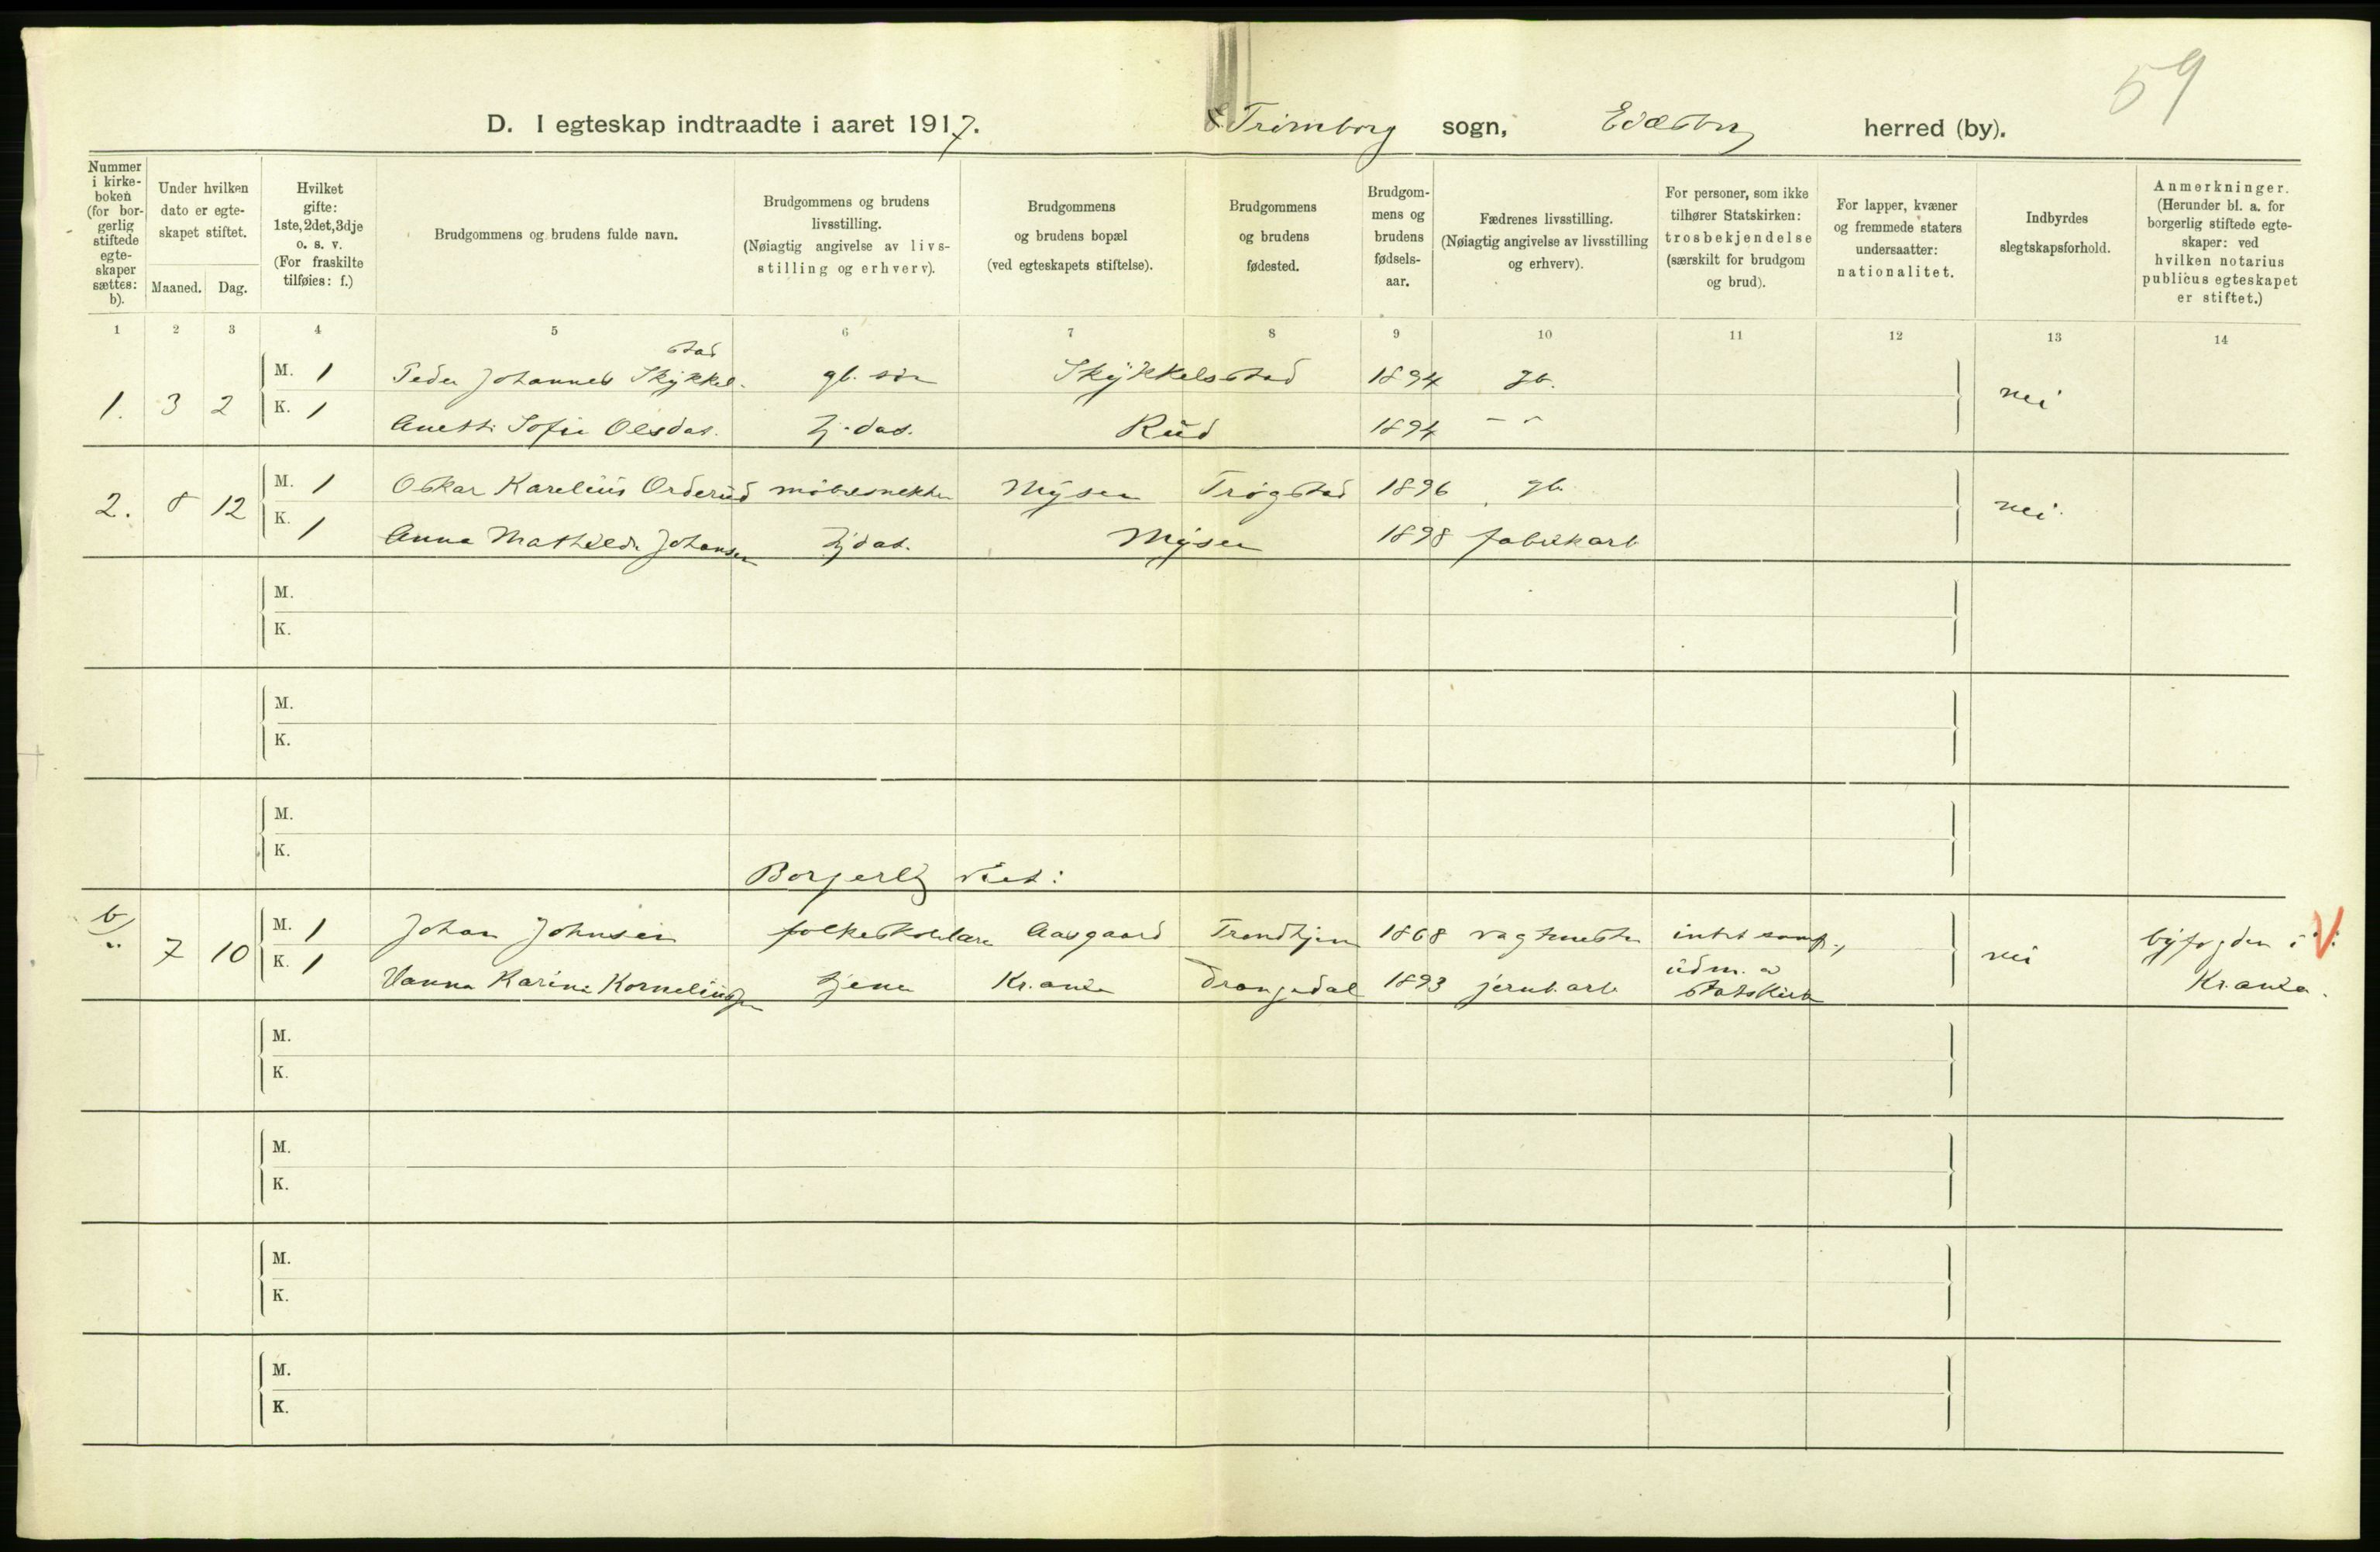 59
D. I egteskap indtraadte i aaret 1917. Trømborg sogn, Eidsberg herred (by).
Nummer i kirkeboken (for borgerlig stiftede egteskaper sættes: b).
Under hvilken dato er egteskapet stiftet.
Maaned. Dag.
Hvilket gifte: 1ste, 2det, 3dje o. s. v. (For fraskilte tilføies: f.)
Brudgommens og brudens fulde navn.
Brudgommens og brudens livsstilling. (Nøiagtig angivelse av livsstilling og erhverv).
Brudgommens og brudens bopæl (ved egteskapets stiftelse).
Brudgommens og brudens fødested.
Brudgommens og brudens fødselsaar.
Fædrenes livsstilling. (Nøiagtig angivelse av livsstilling og erhverv).
For personer, som ikke tilhører Statskirken: trosbekjendelse (særskilt for brudgom og brud).
For lapper, kvæner og fremmede staters undersaatter: nationalitet.
Indbyrdes slegtskapsforhold.
Anmerkninger. (Herunder bl. a. for borgerlig stiftede egteskaper: ved hvilken notarius publicus egteskapet er stiftet.)
1 2 3 4 5 6 7 8 9 10 11 12 13 14
stad
M. 1 Peder Johannes Skykkel- gb. søn Skykkelsstad 1894 gb.
1. 3 2 nei
K. 1 Anette Sofie Olsdat. hj. dat. Rud 1894 – "
M. 1 Oskar Karelius Orderud møbelsnekker Mysen Trøgstad 1896 gb.
2. 8 12 nei
K. 1 Anna Mathilde Johansen hj dat. Mysen 1898 fabrikarb
M.
K.
M.
K.
M.
K.
Borgerlig viet:
b
M. 1 Johan Johnsen folkeskolelærer Aasgaard Trondhjem 1868 vagtmester intet samf., byfogden i V
7 10 nei
K. 1 Vanna Karine Korneliussen tjener Kr.ania Drangedal 1893 jernb. arb. udm. a statskirk Kr.ania.
M.
K.
M.
K.
M.
K.
M.
K.